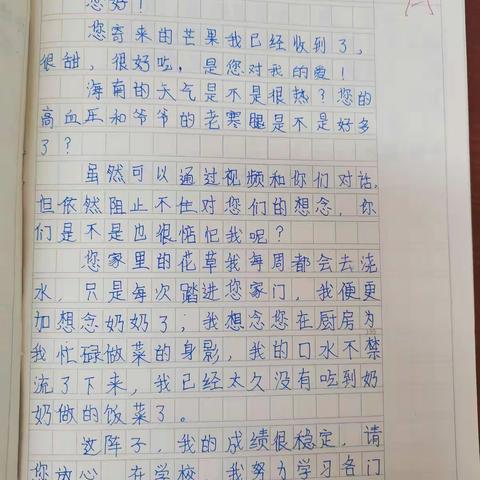 您好！
您寄来的芒果我已经收到了，
很甜，很好吃，是您对我的爱！
海南的天气是不是很热？您的
高血压和爷爷的老寒腿是不是好多
了？
虽然可以通过视频和你们对话，
但依然阻止不住对您们的想念，你
们是不是也很惦记我呢？
您家里的花草我每周都会去浇
水，只是每次踏进您家门，我便更
加想念奶奶了；我想念您在厨房为
我忙碌做菜的身影，我的口水不禁
流了下来，我已经太久没有吃到奶
奶做的饭菜了。
这阵子，我的成绩很稳定，请
您放心，在学校，我努力学习各门